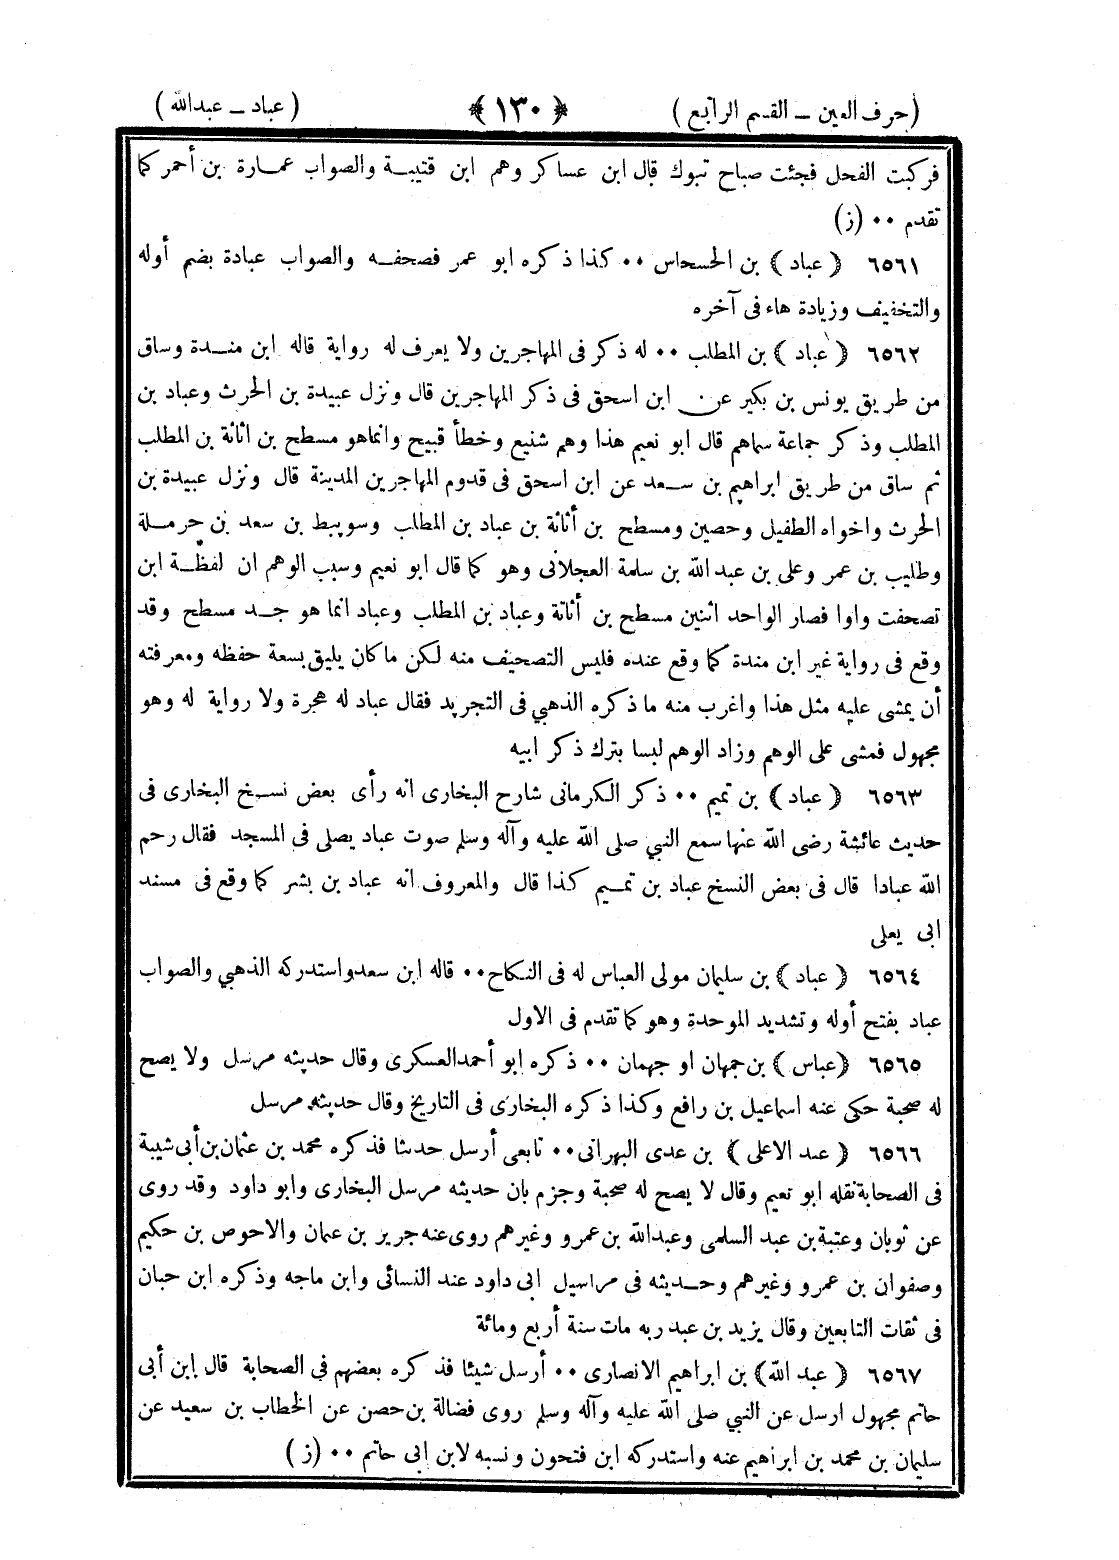 (حرف العين ــ القسم الرابع) ﴿ ١٣٠ ﴾ (عباد ــ عبدالله)
فركبت الفحل فجئت صباح تبوك قال ابن عساكر وهم ابن قتيبة والصواب عمارة بن أحمر كما
تقدم ٠٠ (ز)
٦٥٦١ ﴿ عباد ﴾ بن الحسحاس ٠٠ كذا ذكره ابو عمر فصحفه والصواب عبادة بضم أوله
والتخفيف وزيادة هاء فى آخره
٦٥٦٢ ﴿ عباد ﴾ بن المطلب ٠٠ له ذكر فى المهاجرين ولا يعرف له رواية قاله ابن مندة وساق
من طريق يونس بن بكير عن ابن اسحق فى ذكر المهاجرين قال ونزل عبيدة بن الحرث وعباد بن
المطلب وذكر جماعة سماهم قال ابو نعيم هذا وهم شنيع وخطأ قبيح وانماهو مسطح بن اثاثة بن المطلب
ثم ساق من طريق ابراهيم بن سعد عن ابن اسحق فى قدوم المهاجرين المدينة قال ونزل عبيدة بن
الحرث واخواه الطفيل وحصين ومسطح بن أثاثة بن عباد بن المطلب وسويبط بن سعد بن حرملة
وطليب بن عمر وعلى بن عبد الله بن سلمة العجلانى وهو كما قال ابو نعيم وسبب الوهم ان لفظة ابن
تصحفت واوا فصار الواحد اثنين مسطح بن أثاثة وعباد بن المطلب وعباد انما هو جد مسطح وقد
وقع فى رواية غير ابن مندة كما وقع عنده فليس التصحيف منه لكن ماكان يليق بسعة حفظه ومعرفته
أن يمشى عليه مثل هذا واغرب منه ماذكره الذهبي فى التجريد فقال عباد له هجرة ولا رواية له وهو
مجهول فمشى على الوهم وزاد الوهم لبسا بترك ذكر ابيه
٦٥٦٣ ﴿ عباد ﴾ بن تميم ٠٠ ذكر الكرمانى شارح البخارى انه رأى بعض نسخ البخارى فى
حديث عائشة رضى الله عنها سمع النبي صلى الله عليه وآله وسلم صوت عباد يصلى فى المسجد فقال رحم
الله عبادا قال فى بعض النسخ عباد بن تميم كذا قال والمعروف انه عباد بن بشر كما وقع فى مسند
ابى يعلى
٦٥٦٤ ﴿ عباد ﴾ بن سليمان مولى العباس له فى النكاح٠٠ قاله ابن سعدواستدركه الذهبي والصواب
عباد بفتح أوله وتشديد الموحدة وهو كما تقدم فى الاول
٦٥٦٥ ﴿عباس ﴾ بن جمهان او جهمان ٠٠ ذكره ابو أحمدالعسكرى وقال حديثه مرسل ولا يصح
له صحبة حكى عنه اسماعيل بن رافع وكذا ذكره البخارى فى التاريخ وقال حديثه مرسل
٦٥٦٦ ﴿ عبد الاعلى ﴾ بن عدى البهرانى٠٠ تابعى أرسل حديثا فذكره محمد بن عثمان بن أبى شيبة
فى الصحابة نقله ابو نعيم وقال لا يصح له صحبة وجزم بان حديثه مرسل البخارى وابو داود وقد روى
عن ثوبان وعتبة بن عبد السلمى وعبدالله بن عمرو وغيرهم روى عنه جرير بن عمان والاحوص بن حكيم
وصفوان بن عمرو وغيرهم وحديثه فى مراسيل ابى داود عند النسائى وابن ماجه وذكره ابن حبان
فى ثقات التابعين وقال يزيد بن عبد ربه مات سنة أربع ومائة
٦٥٦٧ ﴿ عبد الله﴾ بن ابراهيم الانصارى ٠٠ أرسل شيئا فذكره بعضهم فى الصحابة قال ابن أبى
حاتم مجهول ارسل عن النبي صلى الله عليه وآله وسلم روى فضالة بن حصن عن الخطاب بن سعيد عن
سليمان بن محمد بن ابراهيم عنه واستدركه ابن فتحون ونسبه لابن ابى حاتم ٠٠ (ز)